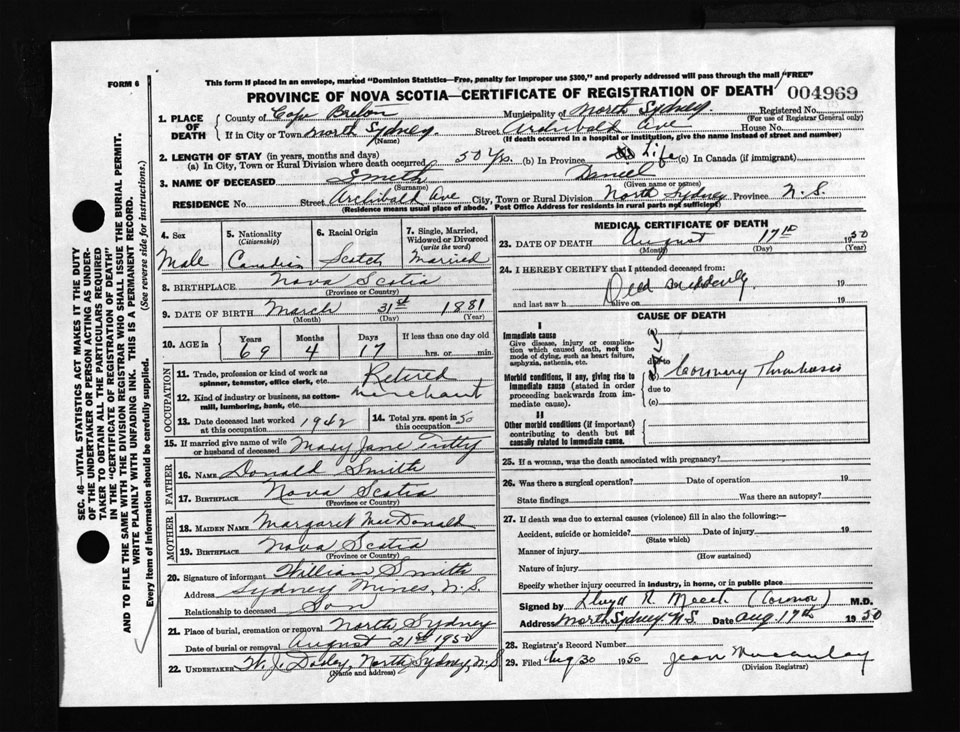 FORM 6
This form if placed in an envelope, marked "Dominion Statistics—Free, penalty for improper use $300," and properly addressed will pass through the mail "FREE"
PROVINCE OF NOVA SCOTIA—CERTIFICATE OF REGISTRATION OF DEATH 004969
1. PLACE OF DEATH
County of Cape Breton Municipality of North Sydney Registered No.
(For use of Registrar General only)
If in City or Town North Sydney Street Archibald Ave House No.
(Name) (If death occurred in a hospital or institution, give the name instead of street and number)
2. LENGTH OF STAY (in years, months and days)
(a) In City, Town or Rural Division where death occurred 50 Yrs. (b) In Province Life (c) In Canada (if immigrant)
3. NAME OF DECEASED Smith Daniel
(Surname) (Given name or names)
RESIDENCE No. Street Archibald Ave City, Town or Rural Division North Sydney Province N.S.
(Residence means usual place of abode. Post Office Address for residents in rural parts not sufficient)
4. Sex Male
5. Nationality (Citizenship) Canadian
6. Racial Origin Scotch
7. Single, Married, Widowed or Divorced (write the word) Married
8. BIRTHPLACE Nova Scotia
(Province or Country)
9. DATE OF BIRTH March 31st 1881
(Month) (Day) (Year)
10. AGE in Years Months Days If less than one day old
69 4 17 hrs. or min.
OCCUPATION
11. Trade, profession or kind of work as spinner, teamster, office clerk, etc. Retired
12. Kind of industry or business, as cotton-mill, lumbering, bank, etc. merchant
13. Date deceased last worked at this occupation 1942
14. Total yrs. spent in this occupation 50
15. If married give name of wife or husband of deceased Mary Jane
FATHER
16. NAME Donald Smith
17. BIRTHPLACE Nova Scotia
(Province or Country)
MOTHER
18. MAIDEN NAME Margaret MacDonald
19. BIRTHPLACE Nova Scotia
(Province or Country)
20. Signature of informant William Smith
Address Sydney Mines, N.S.
Relationship to deceased Son
21. Place of burial, cremation or removal North Sydney
Date of burial or removal August 21st 1950
22. UNDERTAKER W. J. Dooley, North Sydney, N.S
(Name and address)
MEDICAL CERTIFICATE OF DEATH
23. DATE OF DEATH August 17th 1950
(Month) (Day) (Year)
24. I HEREBY CERTIFY that I attended deceased from:
Died suddenly 19
and last saw h alive on 19
CAUSE OF DEATH
I
Immediate cause
Give disease, injury or complication which caused death, not the mode of dying, such as heart failure, asphyxia, asthenia, etc.
(a)
due to
Morbid conditions, if any, giving rise to immediate cause (stated in order proceeding backwards from immediate cause).
(b) Coronary Thrombosis
due to
(c)
II
Other morbid conditions (if important) contributing to death but not causally related to immediate cause.
25. If a woman, was the death associated with pregnancy?
26. Was there a surgical operation? Date of operation 19
State findings Was there an autopsy?
27. If death was due to external causes (violence) fill in also the following:—
Accident, suicide or homicide? Date of injury 19
(State which)
Manner of injury
(How sustained)
Nature of injury
Specify whether injury occurred in industry, in home, or in public place
Signed by (Coronor) M.D.
Address North Sydney N.S Date Aug. 17th 1950
28. Registrar's Record Number
29. Filed Aug 30 1950 Jean Macaulay
(Division Registrar)
SEC. 46—VITAL STATISTICS ACT MAKES IT THE DUTY
OF THE UNDERTAKER OR PERSON ACTING AS UNDER-
TAKER TO OBTAIN ALL THE PARTICULARS REQUIRED
IN THE "CERTIFICATE OF REGISTRATION OF DEATH"
AND TO FILE THE SAME WITH THE DIVISION REGISTRAR WHO SHALL ISSUE THE BURIAL PERMIT.
WRITE PLAINLY WITH UNFADING INK. THIS IS A PERMANENT RECORD.
Every item of information should be carefully supplied. (See reverse side for instructions.)